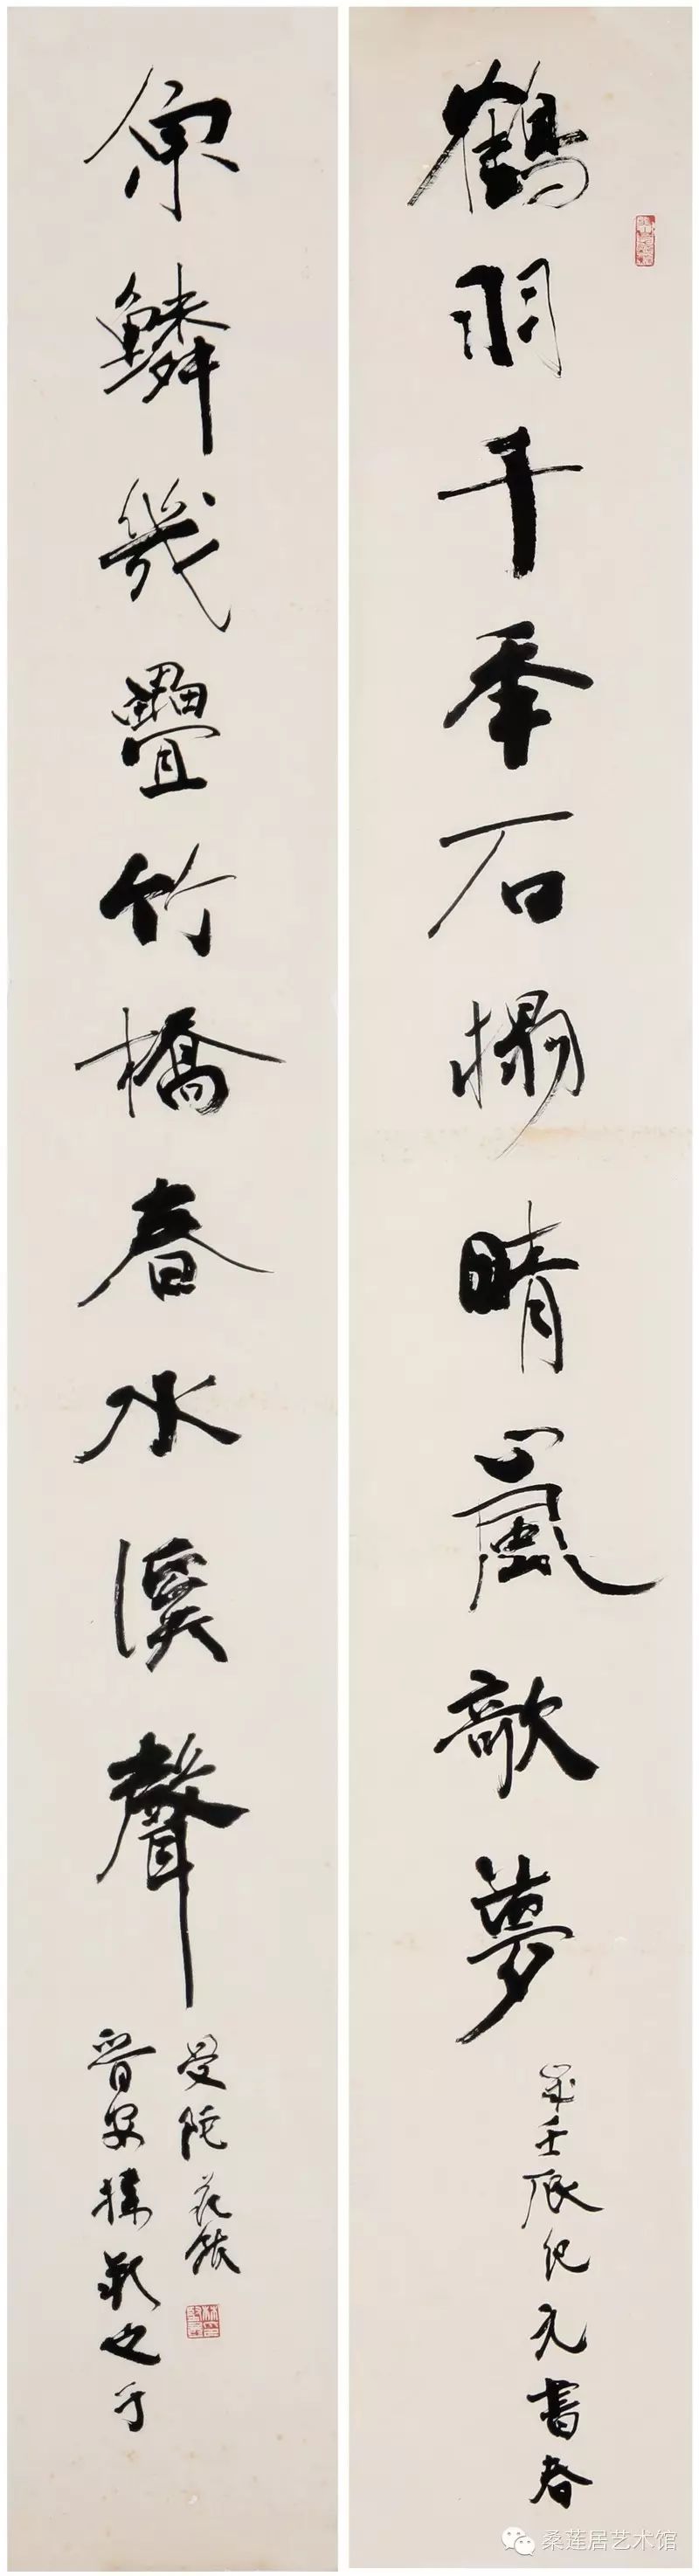 鶴羽千年石榻晴嵐歌夢
歲壬辰紀元書春
魚鱗幾疊竹橋春水溪聲
晋安之于
曼陀花館
桑莲居艺术馆